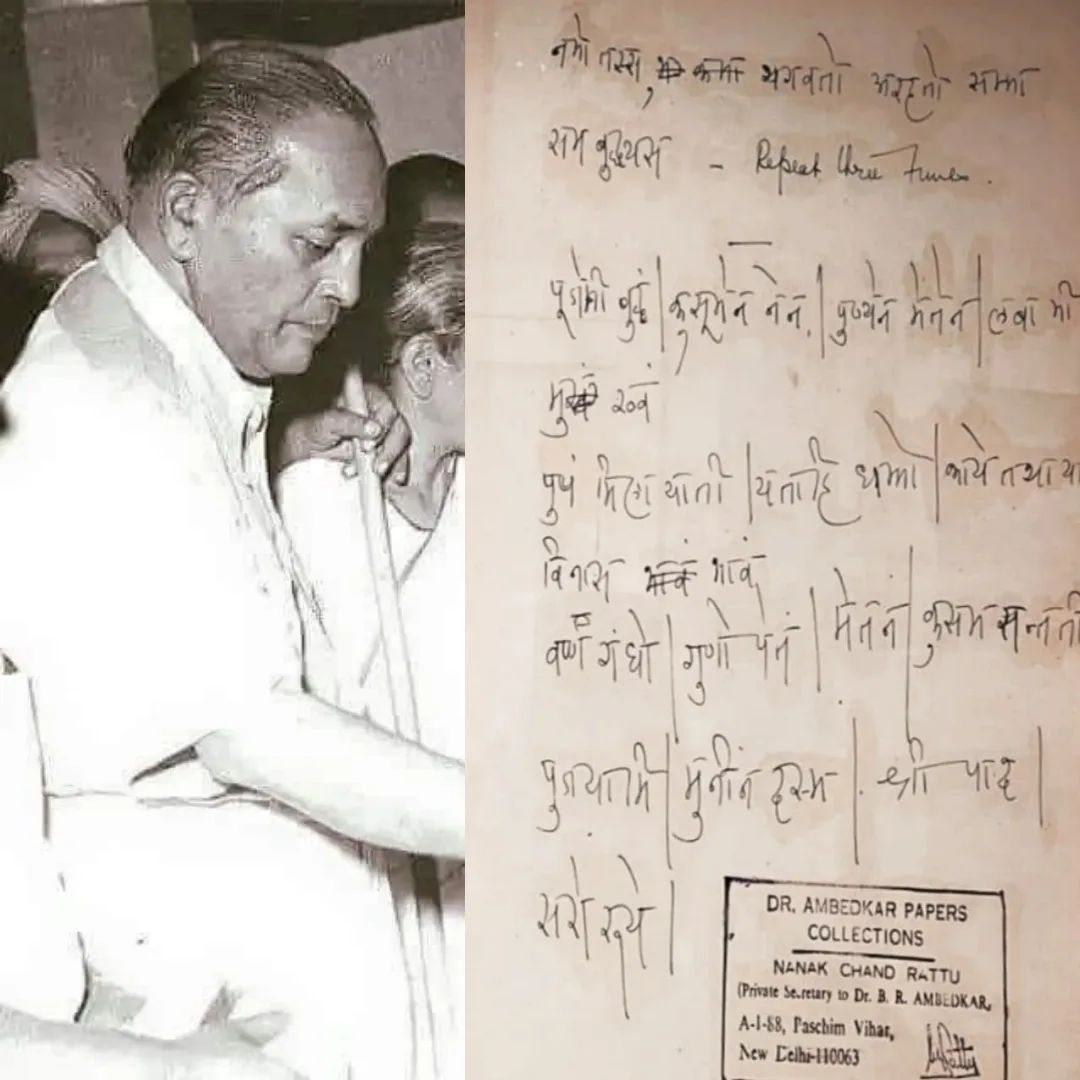 नमो तस्स, भगवतो अरहतो सम्मा
सम बुद्धयस – Repeat three Times.
पूजेमी बुद्धं | कुसूमेन नेन, | पुण्येन मेतेन | लबा मी
खवं
पुपं याती | यंताहि धम्मो | काये तथा या
विनास भावं
वर्ण गंधो | गुणो पेतं | मेतनं | कुसम सन्तती
पुजयामि | मुनीनं दस्म | श्री पाद |
सरो रुये |
DR. AMBEDKAR PAPERS
COLLECTIONS
NANAK CHAND RATTU
(Private Secretary to Dr. B. R. AMBEDKAR,
A-1-88, Paschim Vihar,
New Delhi-110063